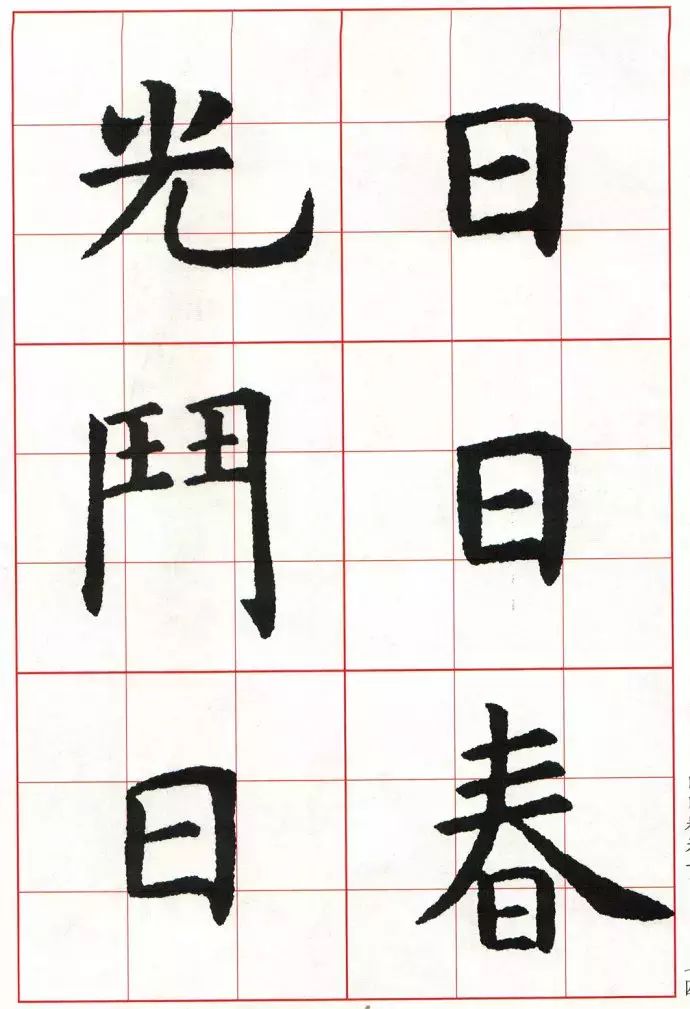 日日春
光鬥日